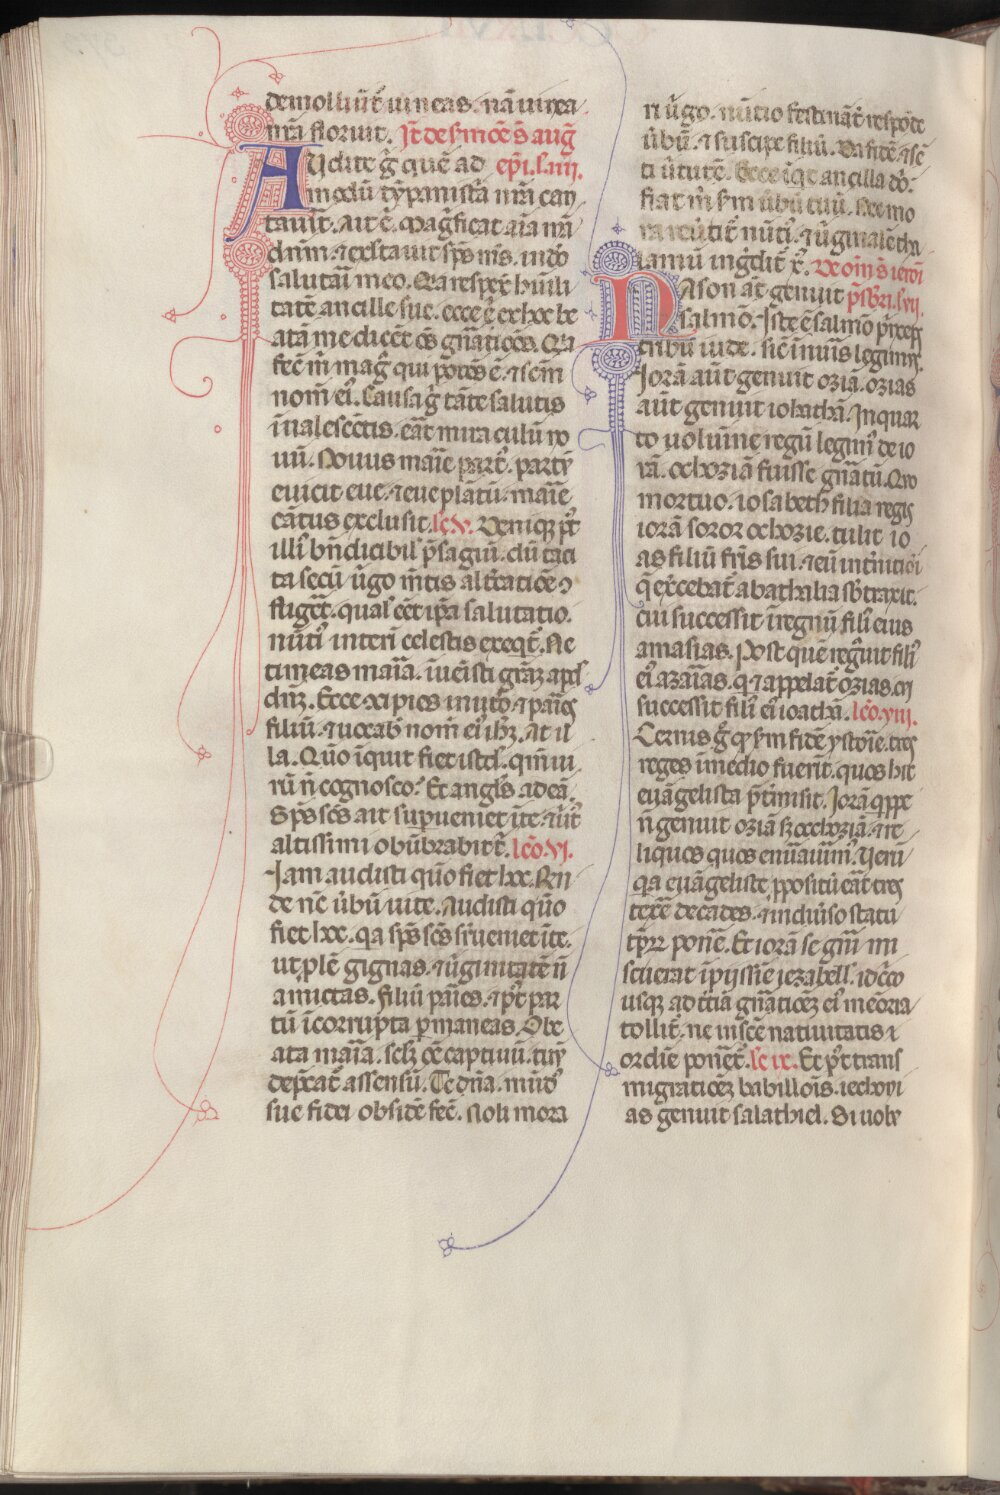 demoliunt̃ uineas. nã uinea
nr̃a floruit. It̃ de sermõe s̃ aug̃
Audite g̃ quẽ ad ep̃i. l. iiii.
modũ tỹpanistã nr̃a can
tauit̃. Ait ẽ. Mag̃ficat aĩa mea
dñm. ⁊ exltauit sp̃s ms̃. indõ
salutari meo. Qia respex̃ humili
tatẽ ancille sue. ecce ẽ ex hoc be
atã me dicẽt oẽs gñatiões. Qia
fecit m̃ mag̃ qui potẽs ẽ. ⁊ scm̃
nom̃ ei᷒. Causa g̃ tãte salutis
ĩualescẽtis. eãt miraculũ no
uũ. Nouus marie part᷒. partũ
euicit eue. ⁊ eue plãtũ. marie
cãtus exclusit. lc̃ v. Deniqꝫ p᷒t
illã bñdicibilẽ p̃sagiũ. dũ taci
ta secũ ũgo mẽtis alt̃catiõe
fluget̃. qualis eẽt ip̃a salutatio.
nũti᷒ interim celestis exeqt̃. Ne
timeas maria. ĩuẽisti grãz apd̃
dm̃. Ecce ↄcipies in utõ. ⁊ paries
filiũ. ⁊ uocab̃ nom̃ ei᷒ ih̃z. At il
la. Quõ inquit fiet istd̃. qm̃ ui
rũ ñ cognosco? Et angl̃s ad eã.
Sp̃s sc̃s ait sup̃ueniet ĩte. ⁊ ũt᷒
altissimi obũbrabit t̃. lcõ. vi.
Iam audisti quõ fiet hoc. Rñ
de nc̃ ũbũ uite. Audisti quõ
fiet hoc. qa sp̃s sc̃s sup̃ueniet ĩte.
ut prolẽ gignas. ⁊ ũginitatẽ ñ
amictas. filiũ paries. ⁊ p᷒t par
tũ ĩcorrupta p̱maneas. O be
ata maria. sclꝫ oẽ captiuũ. tuũ
dep̃cat̃ assensũ. Te dñã. mũd᷒
sue fidei obsidẽ fecit̃. Noli mora
ri ũgo. nũtio festinãt̃ respõde
ũbũ. ⁊ suscipe filiũ. Da fidẽ. ⁊ sẽ
ti ũtutẽ. Ecce iqt̃ ancilla dñi.
fiat m̃ scm̃ ũbũ tuũ. Nec mo
ra reũtit̃ nũti᷒. ⁊ ũginalẽ tha
lamũ ingredit̃ x᷒. De oml̃ s̃ ieroĩ
Nason aũt genuit p̃sbri. l. vii.
salmõ. Iste ẽ salmõ p̃nceps
tribũ iude. sic̃ ĩ nũis legim᷒.
Iorã aũt genuit oziã. ozias
aũt genuit iohathã. In quar
to uolumĩe regũ legim᷒ de io
rã. ochoziã fuisse gñatũ. Quo
mortuo. iosabeth filia regis
iorã soror ochozie. tulit io
as filiũ fr̃is sui. ⁊ eũ int̃nitiõi
q̃ ex̃cebat̃ ab athalia sb̃traxit.
Cui successit ĩ regnũ fili᷒ eius
amasias. Post quẽ regñuit fili᷒
ei᷒ azarias. q̃ ⁊ appelat̃ ozias. cui
successit fili᷒ ei᷒ ioathã. lcõ. viii.
Cernis g̃ qꝫ scm̃ fidẽ ystorie. tres
reges ĩ medio fuerĩt. quos hic
euãgelista p̃t̃misit. Iorã qppe
ñ genuit oziã sꝫ ochoziã. ⁊ re
liquos quos enũauim᷒. Uerũ
qa euãgeliste ꝓpositũ eãt tres
texẽ decades. ĩ indiuiso statu
tp̃rꝫ ponẽ. Et iorã se gñi mi
scuerat ĩpijssime iezabell̃. idcẽo
usqꝫ ad t̃tiã gñatioẽꝫ ei᷒ memoria
tollit᷒. ne in scẽ natiuitatis ĩ
ordie ponet̃. lc̃ ix. Et p᷒t trans
migratioẽꝫ babillois. iechoni
as genuit salathiel. Si uole